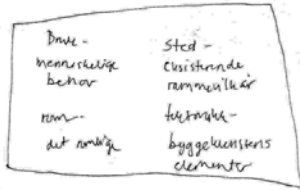 Bruk -
menneskelige
behov
rom -
det romlige
Sted -
eksisterende
rammevilkår
byggekunstens
elementer